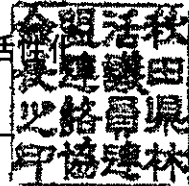 秋田県林
活議員連
盟連絡協
会長之印
性